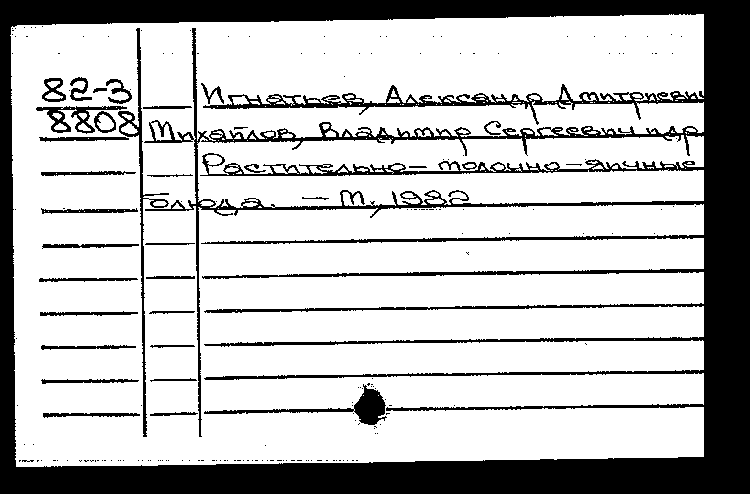 82-3 Игнатьев, Александр Дмитриевич
8808 Михайлов, Владимир Сергеевич и др
Растительно – молочно – яичные
блюда. – М., 1982